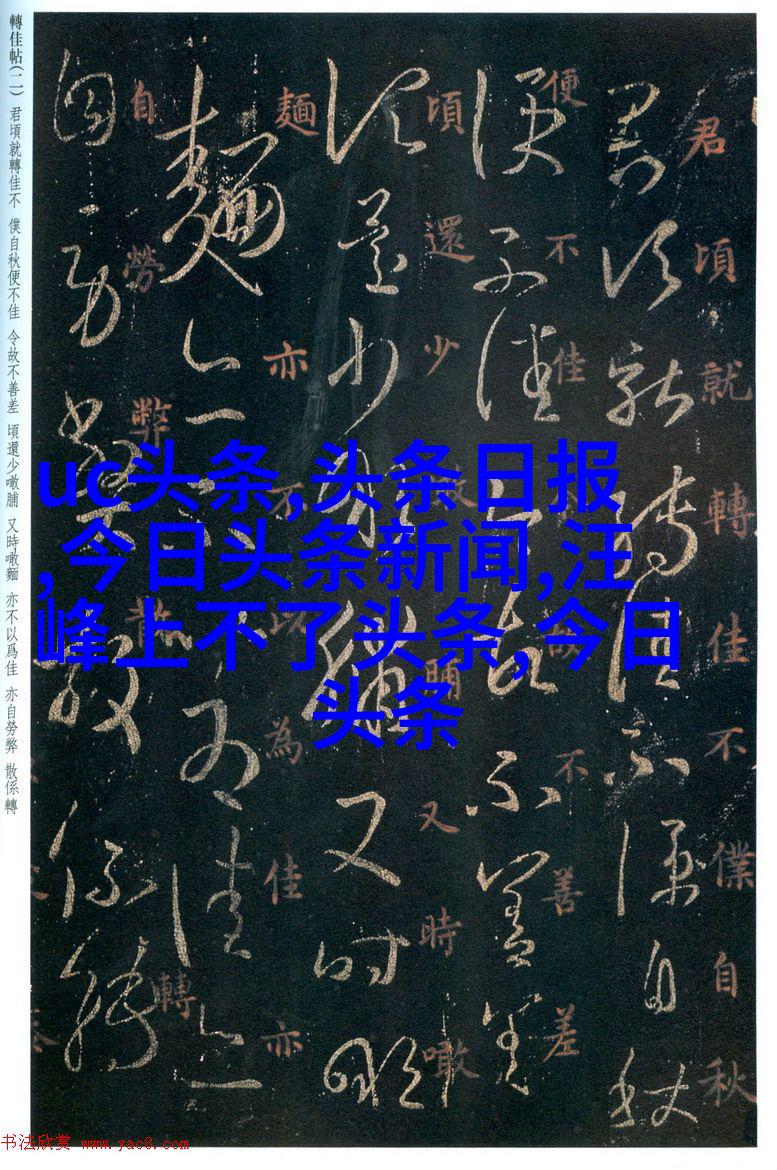 轉佳帖(二) 君頃就轉佳不 僕自秋便不佳 令故不善差 頃還少噉脯 又時噉麵 亦不以爲佳 亦自勞弊 散係轉
君頃就轉佳不僕自秋
便不佳 故不善差
頃還少 脯又時噉
麵亦不以為佳亦
自勞弊 轉
uc头条,头条日报
,今日头条新闻,汪
峰上不了头条,今日
头条
书法欣赏 www.yac8.com